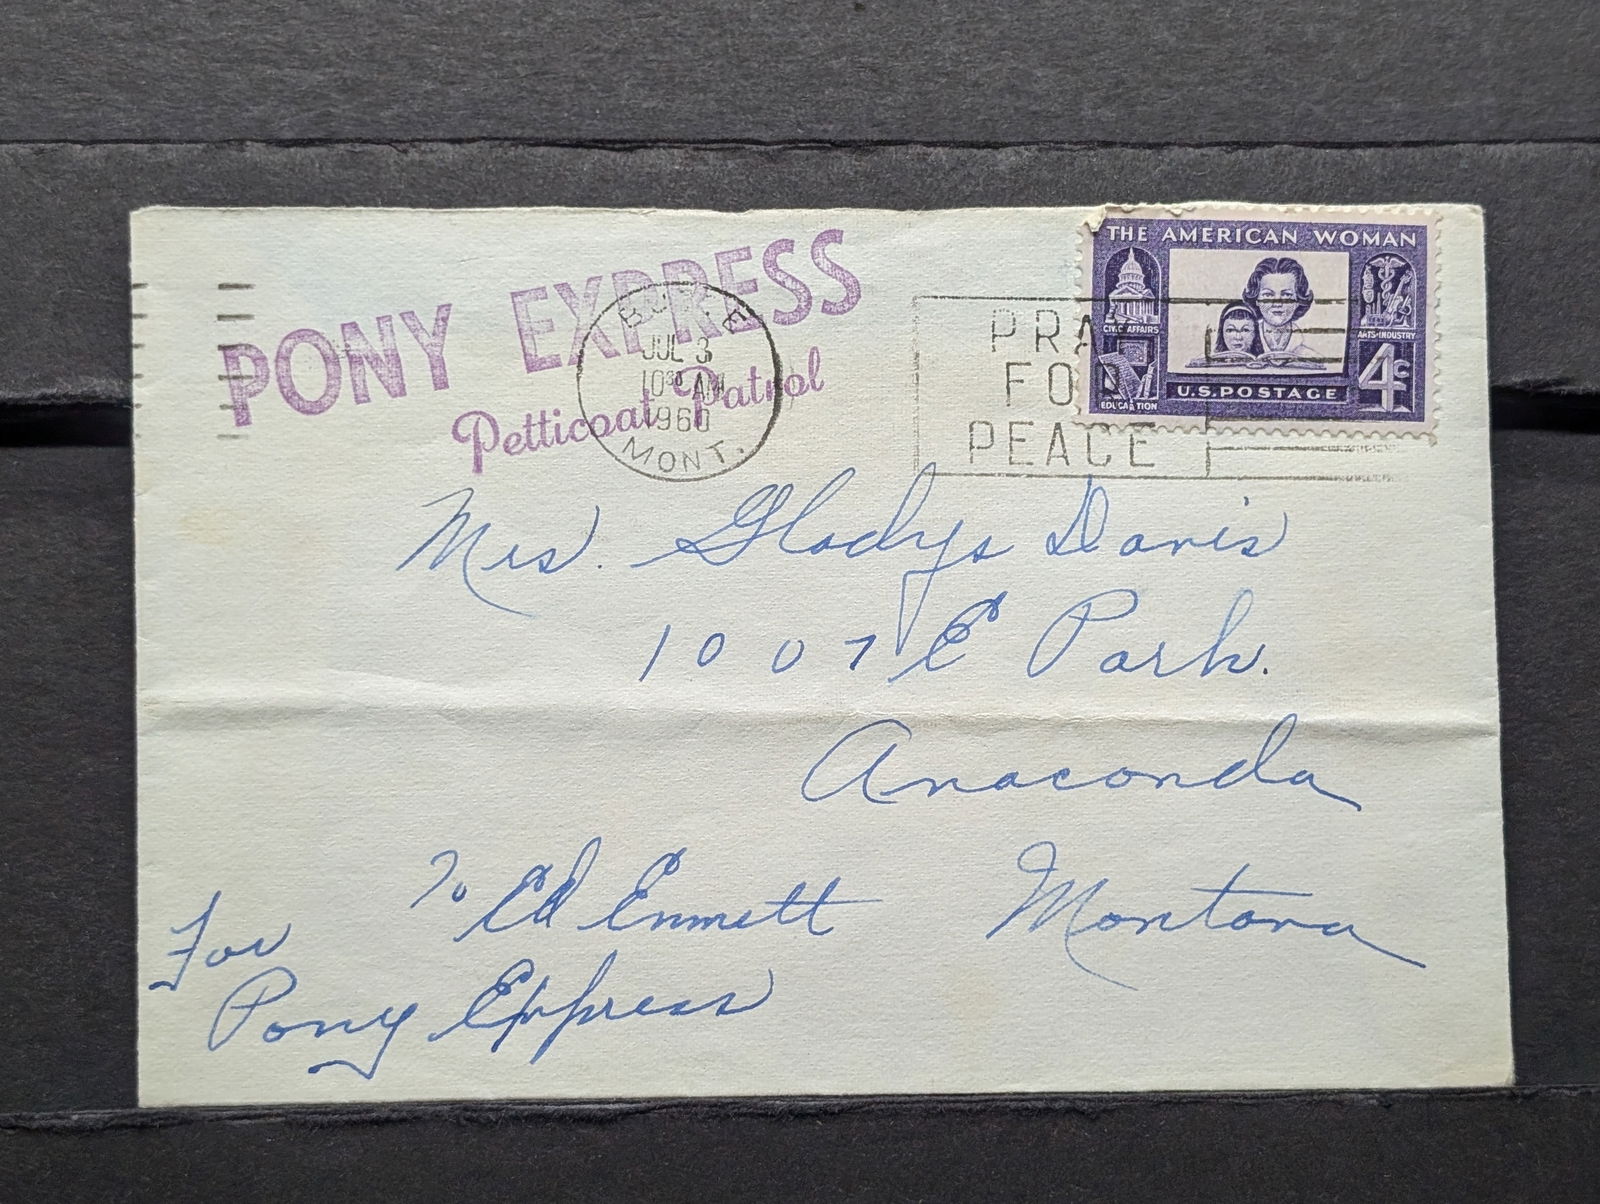 PONY EXPRESS
Petticoat Patrol
BUTTE
JUL 3
10 30 AM
1960
MONT.
PRAY
FOR
PEACE
THE AMERICAN WOMAN
CIVIC AFFAIRS
ARTS-INDUSTRY
EDUCATION
4c
U.S. POSTAGE
Mrs. Gladys Davis
1007 E Park.
Anaconda
Montana
To Ed Emmett
For
Pony Express